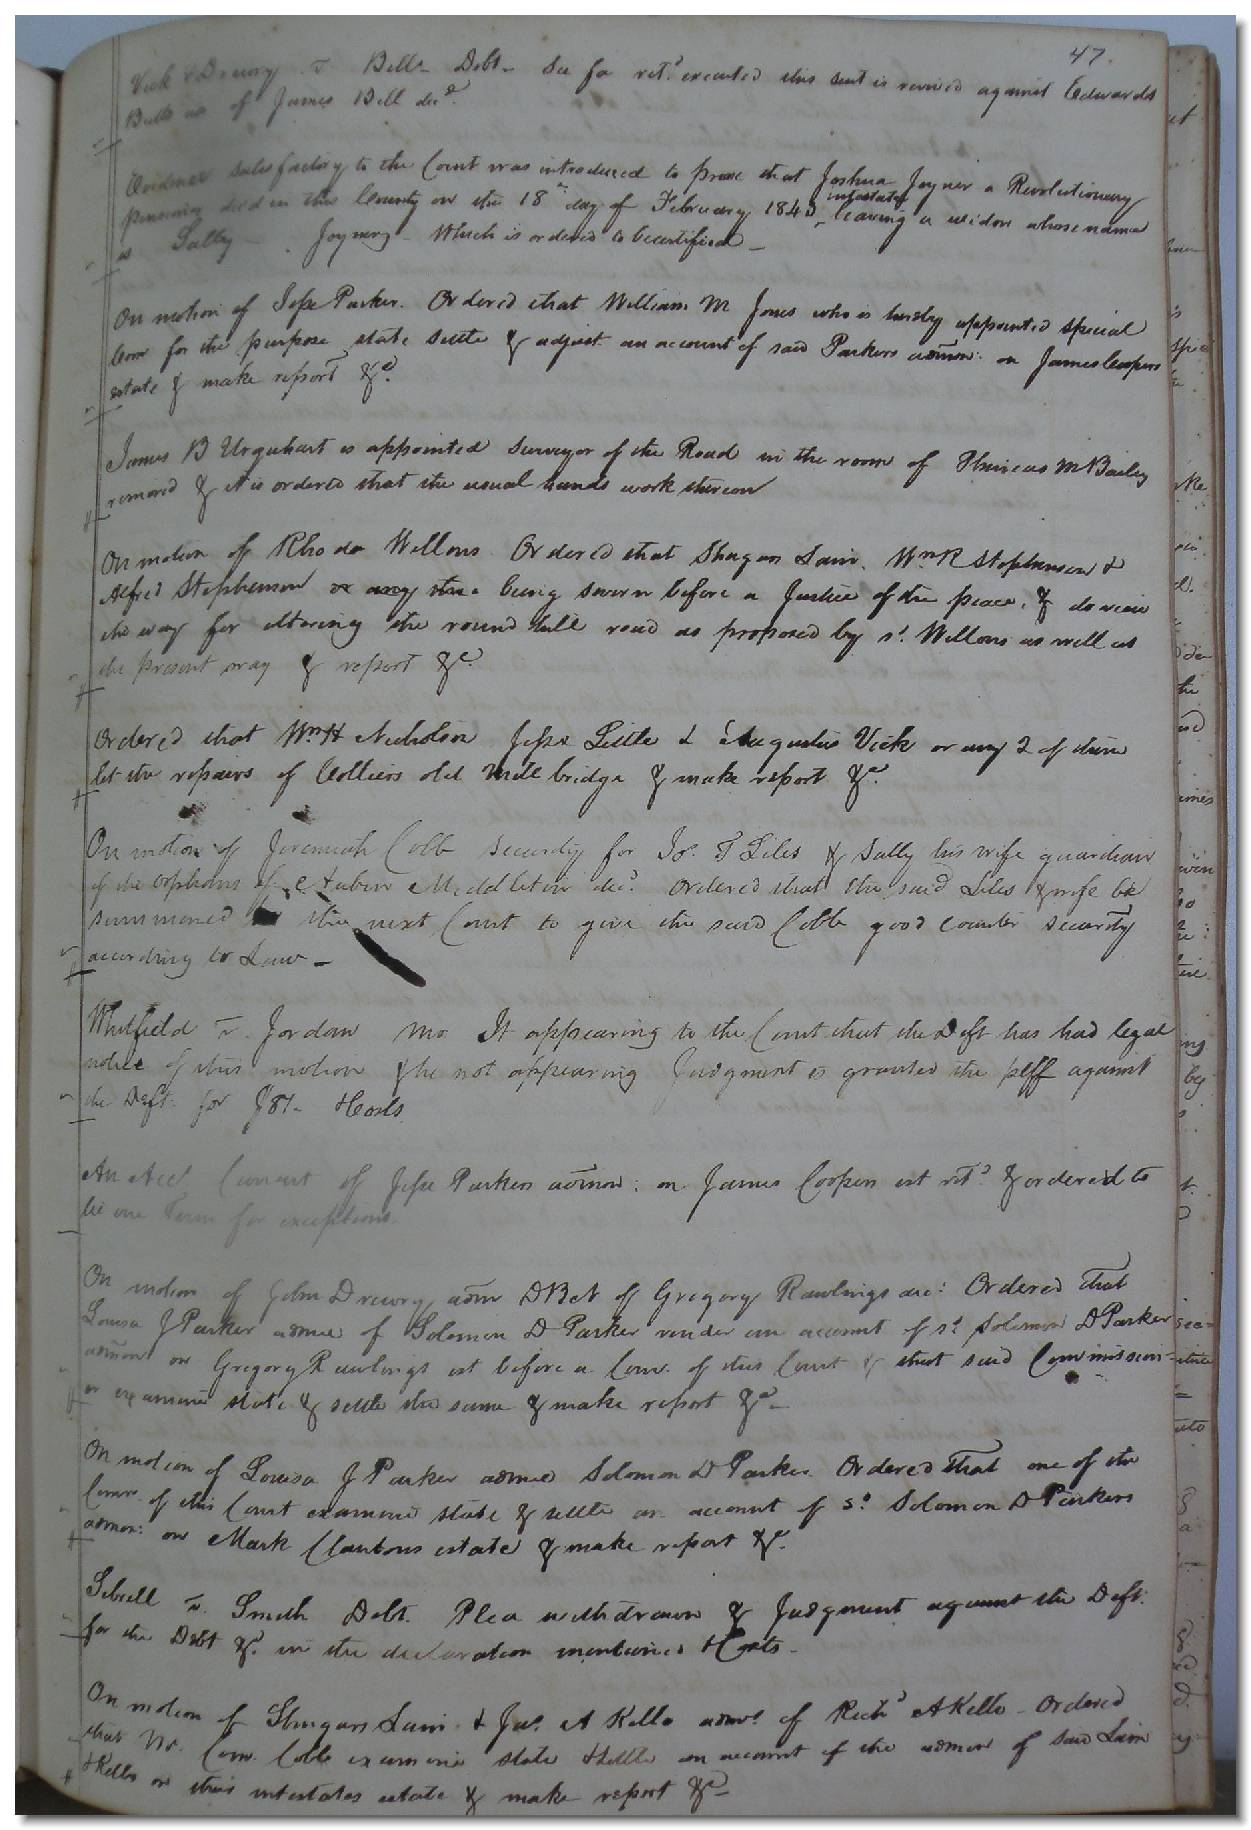 47.
Vick & Drewry v Bells Debt - Sci fa ret.d executed this suit is revived against Edwards
Butts as of James Bell dec.d
Evidence satisfactory to the Court was introduced to prove that Joshua Joyner a Revolutionary
pensioner died in this County on the 18th day of February 184 intestate leaving a widow whose name
is Sally Joyner - Which is ordered to be certified -
On motion of Jesse Parker. Ordered that William M Jones who is hereby appointed special
Com for the purpose state settle & adjust an account of said Parkers admon: on James Coopers
estate & make report &c.
James B Urquhart is appointed Surveyor of the Road in the room of M Bailey
removed & it is ordered that the usual hands work thereon
On motion of Rhoda Wellons Ordered that Lain, Wm R Stephenson &
Alfred Stephenson or any three being sworn before a Justice of the peace, & do view
the way for altering the round hill road as proposed by sd. Wellons as well as
the present way & report &c
Ordered that Wm H Nicholson Jesse Little & Augustus Vick or any 2 of them
let the repairs of Colliers old Mill bridge & make report &c.
On motion of Jeremiah Cobb security for T Liles & Sally his wife guardian
of the orphans of Middleton dec.d Ordered that the said Liles & wife be
summoned to the next Court to give the said Cobb good counter security
according to Law -
Whitfield v. Jordan mo. It appearing to the Court that the Deft has had legal
notice of this motion & he not appearing Judgment is granted the plff against
the Deft. for & Costs
An Acct Current of Jesse Parkers admon: on James Coopers est ret.d & ordered to
lie one Term for exceptions.
On motion of John Drewry, adm DBN of Gregory Rawlings dec: Ordered that
Louisa J Parker admx of Solomon D Parker render an account of sd. Solomon D Parker
admon on Gregory Rawlings est before a Com. of this Court & that said Commission-
er examine state & settle the same & make report &c -
On motion of Louisa J Parker admx Solomon D Parker. Ordered that one of the
Comrs. of this Court examine state & settle an account of sd. Solomon D Parkers
admon: on Mark Clantons estate & make report &c.
Sebrell v. Smith Debt. Plea withdrawn & Judgment against the Deft.
for the Debt &c. in the declaration mentioned & Costs -
On motion of Lain & Jas. A Kello admrs. of Richd A Kello - Ordered
that Mr. Com. Cobb examine state & settle an account of the admon of said Lain
& Kello on their intestates estate & make report &c -